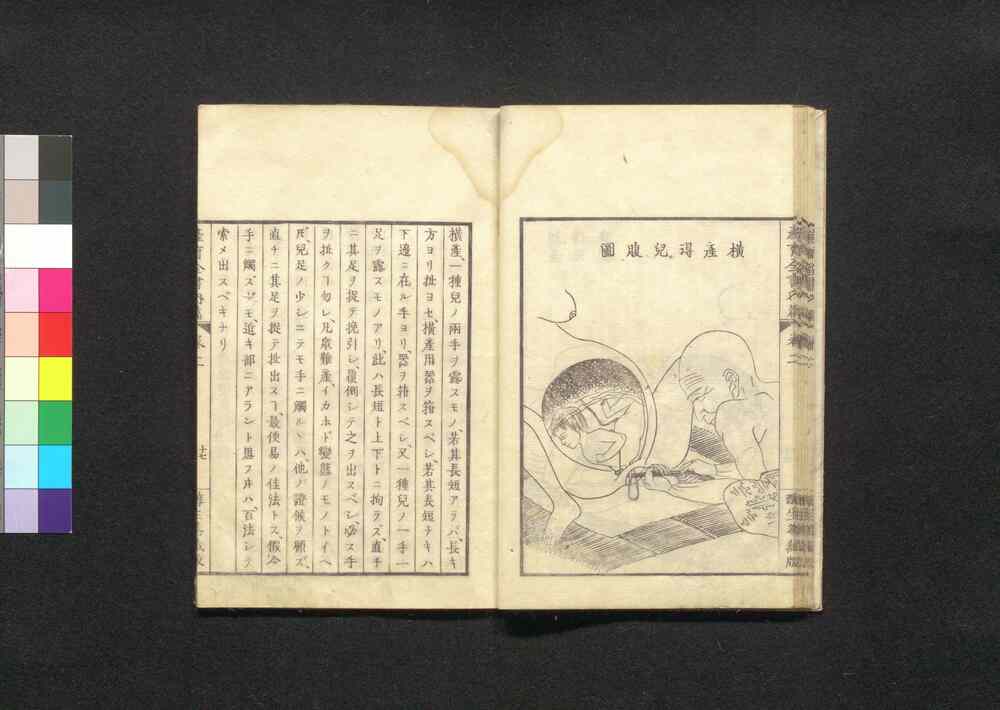 横產得兒腹圖
橫產、一種兒ノ兩手ヲ露スモノ、若其長短アラバ、長キ
方ヨリ扯ヨセ、橫產用器ヲ箝スベシ、若其長短ナキハ
下邊ニ在ル手ヨリ、器ヲ箝スベシ、又一種兒ノ一手一
足ヲ露スモノアリ、此ハ長短ト上下トニ拘ラズ、直手
ニ其足ヲ捉テ挽引シ、覆側シテ之ヲ出スベシ、必ス手
ヲ扯クヿ勿レ、凡衆難產、イカホド變態ノモノトイヘ
𪜈、兒足ノ少シニテモ手ニ觸ルヽハ、他ノ證候ヲ顧ズ、
直チニ其足ヲ捉テ扯出スヿ、最便易ノ佳法トス、假令
手ニ觸ズトモ、近キ部ニアラント思フヰハ、百法シテ
索メ出スベキナリ